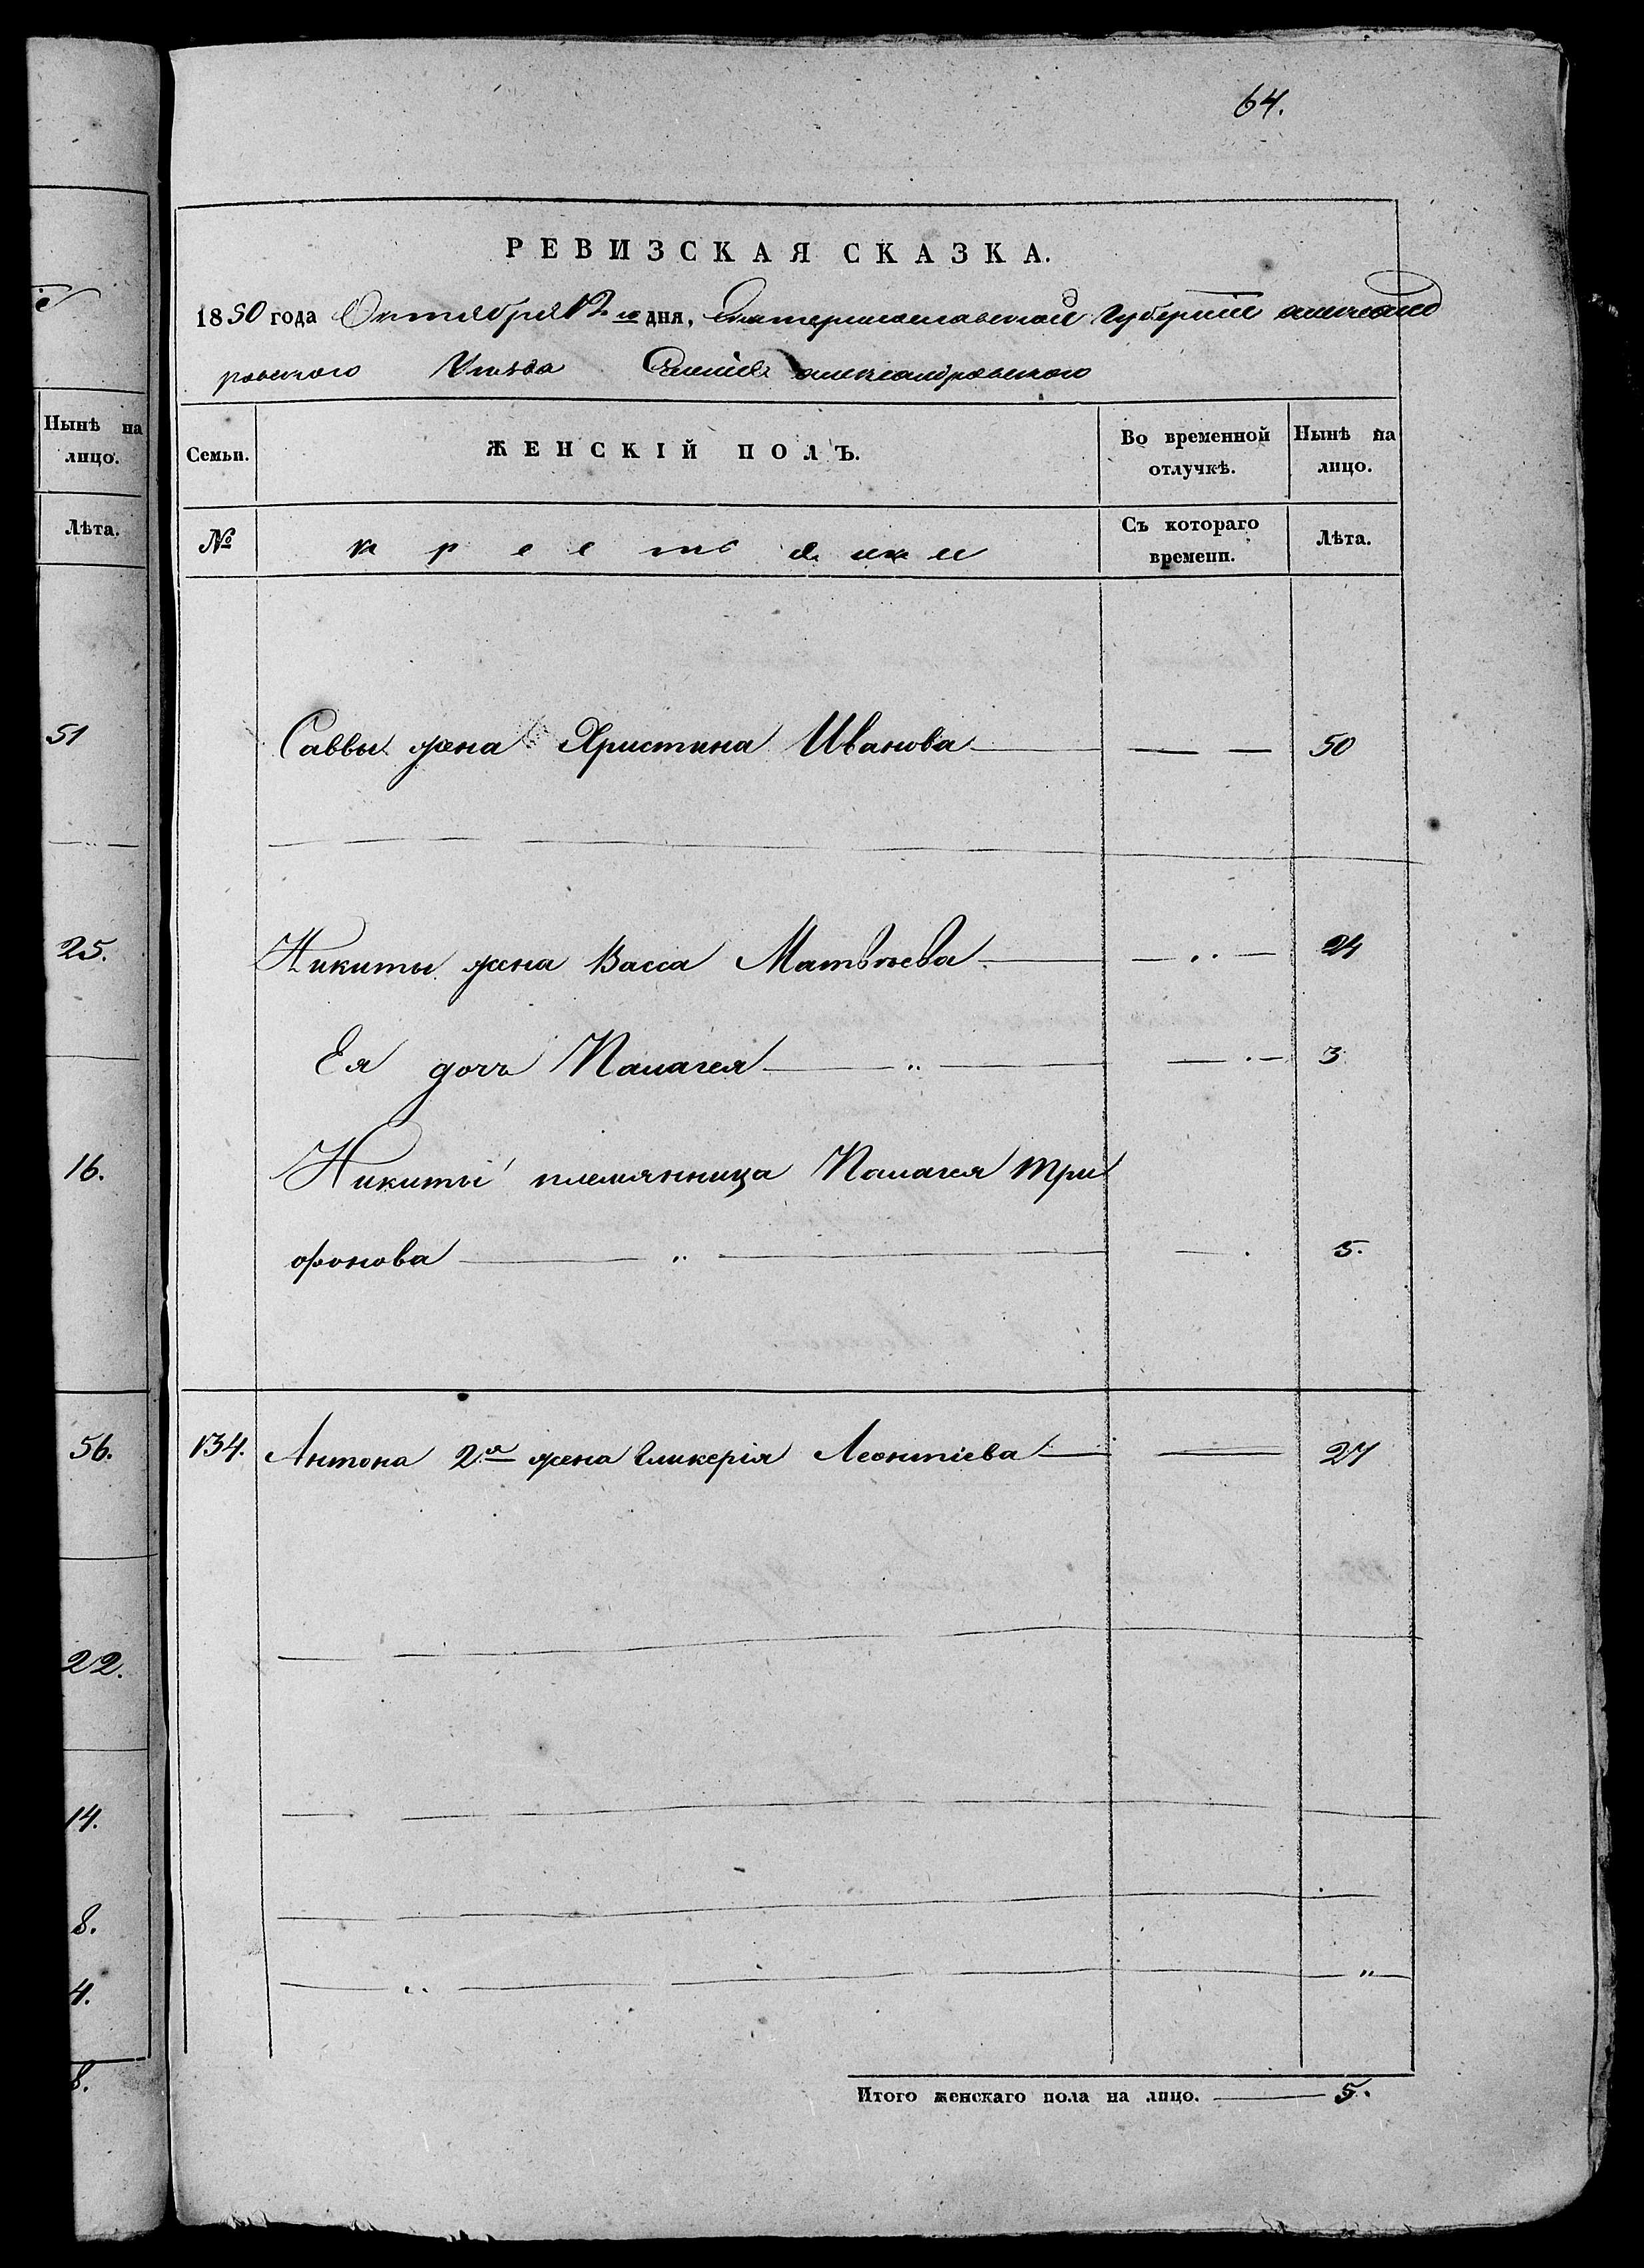 64.
РЕВИЗСКАЯ СКАЗКА.
1850 года Октября 12го дня, Екатеринославской Губернии Александ
ровского Уезда Александровского
Нынѣ на
лицо.
Лѣта.
51
25.
16.
56.
22.
14.
8.
4.
8.
Семьи. ЖЕНСКІЙ ПОЛЪ. Во временной отлучкѣ. Нынѣ на лицо.
№ крестьянки Съ котораго времени. Лѣта.
Саввы жена Христина Иванова 50
Никиты жена Васса Матвѣева 24
Ея дочь Палагея 3
Никиты племянница Палагея Три
фонова 5.
134. Антона 2я жена Гликерія Леонтіева 27
Итого женскаго пола на лицо. 5.